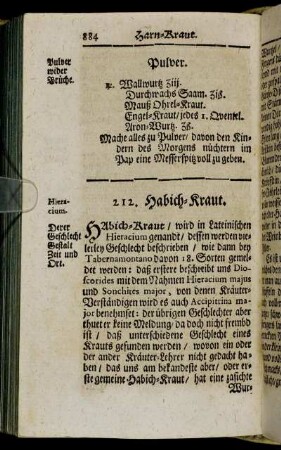 884 Harn-Kraut.
Pulver
wider
Brüche.
Pulver.
℞. Wallwurtz Ziij.
Durchwachs Saam. Zis.
Mauß Ohrel-Kraut.
Engel-Kraut / jedes 1. Quentel.
Aron-Wurtz. Zs.
Macht alles zu Pulver / davon den Kin-
dern des Morgens nüchtern im
Pap eine Messerspitz voll zu geben.
Hiera-
cium.
212. Habich-Kraut.
Derer
Geschlecht
Gestalt
Zeit und
Ort.
HAbich-Kraut / wird in Lateinischen
Hieracium genandt / dessen werden vie-
lerley Geschlecht beschrieben / wie dann bey
Tabernamontano davon 18. Sorten gemel-
det werden: daß erstere beschreibt uns Dio-
scorides mit dem Nahmen Hieracium majus
und Sonchites major, von denen Kräuter-
Verständigen wird es auch Accipitrina ma-
jor benehmset: der übrigen Geschlechter aber
thut er keine Meldung / da doch nicht frembd
ist / daß unterschiedene Geschlecht eines
Krauts gefunden werden / wovon ein oder
der ander Kräuter-Lehrer nicht gedacht ha-
ben / das uns am bekandeste aber / oder er-
ste gemeine-Habich-Kraut / hat eine zasichte
Wur-